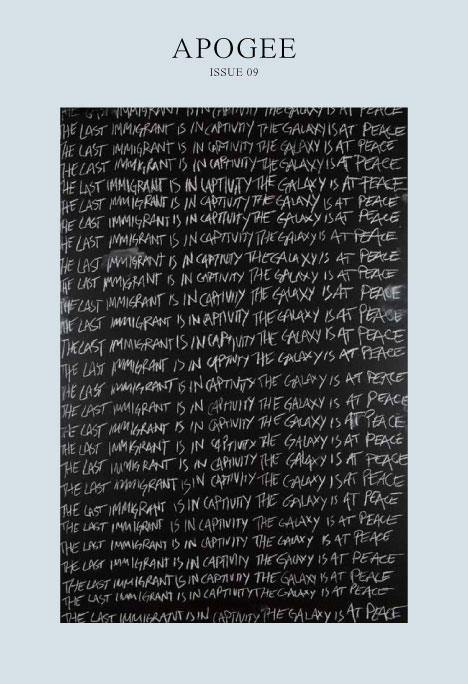 APOGEE
ISSUE 09
THE LAST IMMIGRANT IS IN CAPTIVITY THE GALAXY IS AT PEACE
THE LAST IMMIGRANT IS IN CAPTIVITY THE GALAXY IS AT PEACE
THE LAST IMMIGRANT IS IN CAPTIVITY THE GALAXY IS AT PEACE
THE LAST IMMIGRANT IS IN CAPTIVITY THE GALAXY IS AT PEACE
THE LAST IMMIGRANT IS IN CAPTIVITY THE GALAXY IS AT PEACE
THE LAST IMMIGRANT IS IN CAPTIVITY THE GALAXY IS AT PEACE
THE LAST IMMIGRANT IS IN CAPTIVITY THE GALAXY IS AT PEACE
THE LAST IMMIGRANT IS IN CAPTIVITY THE GALAXY IS AT PEACE
THE LAST IMMIGRANT IS IN CAPTIVITY THE GALAXY IS AT PEACE
THE LAST IMMIGRANT IS IN CAPTIVITY THE GALAXY IS AT PEACE
THE LAST IMMIGRANT IS IN CAPTIVITY THE GALAXY IS AT PEACE
THE LAST IMMIGRANT IS IN CAPTIVITY THE GALAXY IS AT PEACE
THE LAST IMMIGRANT IS IN CAPTIVITY THE GALAXY IS AT PEACE
THE LAST IMMIGRANT IS IN CAPTIVITY THE GALAXY IS AT PEACE
THE LAST IMMIGRANT IS IN CAPTIVITY THE GALAXY IS AT PEACE
THE LAST IMMIGRANT IS IN CAPTIVITY THE GALAXY IS AT PEACE
THE LAST IMMIGRANT IS IN CAPTIVITY THE GALAXY IS AT PEACE
THE LAST IMMIGRANT IS IN CAPTIVITY THE GALAXY IS AT PEACE
THE LAST IMMIGRANT IS IN CAPTIVITY THE GALAXY IS AT PEACE
THE LAST IMMIGRANT IS IN CAPTIVITY THE GALAXY IS AT PEACE
THE LAST IMMIGRANT IS IN CAPTIVITY THE GALAXY IS AT PEACE
THE LAST IMMIGRANT IS IN CAPTIVITY THE GALAXY IS AT PEACE
THE LAST IMMIGRANT IS IN CAPTIVITY THE GALAXY IS AT PEACE
THE LAST IMMIGRANT IS IN CAPTIVITY THE GALAXY IS AT PEACE
THE LAST IMMIGRANT IS IN CAPTIVITY THE GALAXY IS AT PEACE
THE LAST IMMIGRANT IS IN CAPTIVITY THE GALAXY IS AT PEACE
THE LAST IMMIGRANT IS IN CAPTIVITY THE GALAXY IS AT PEACE